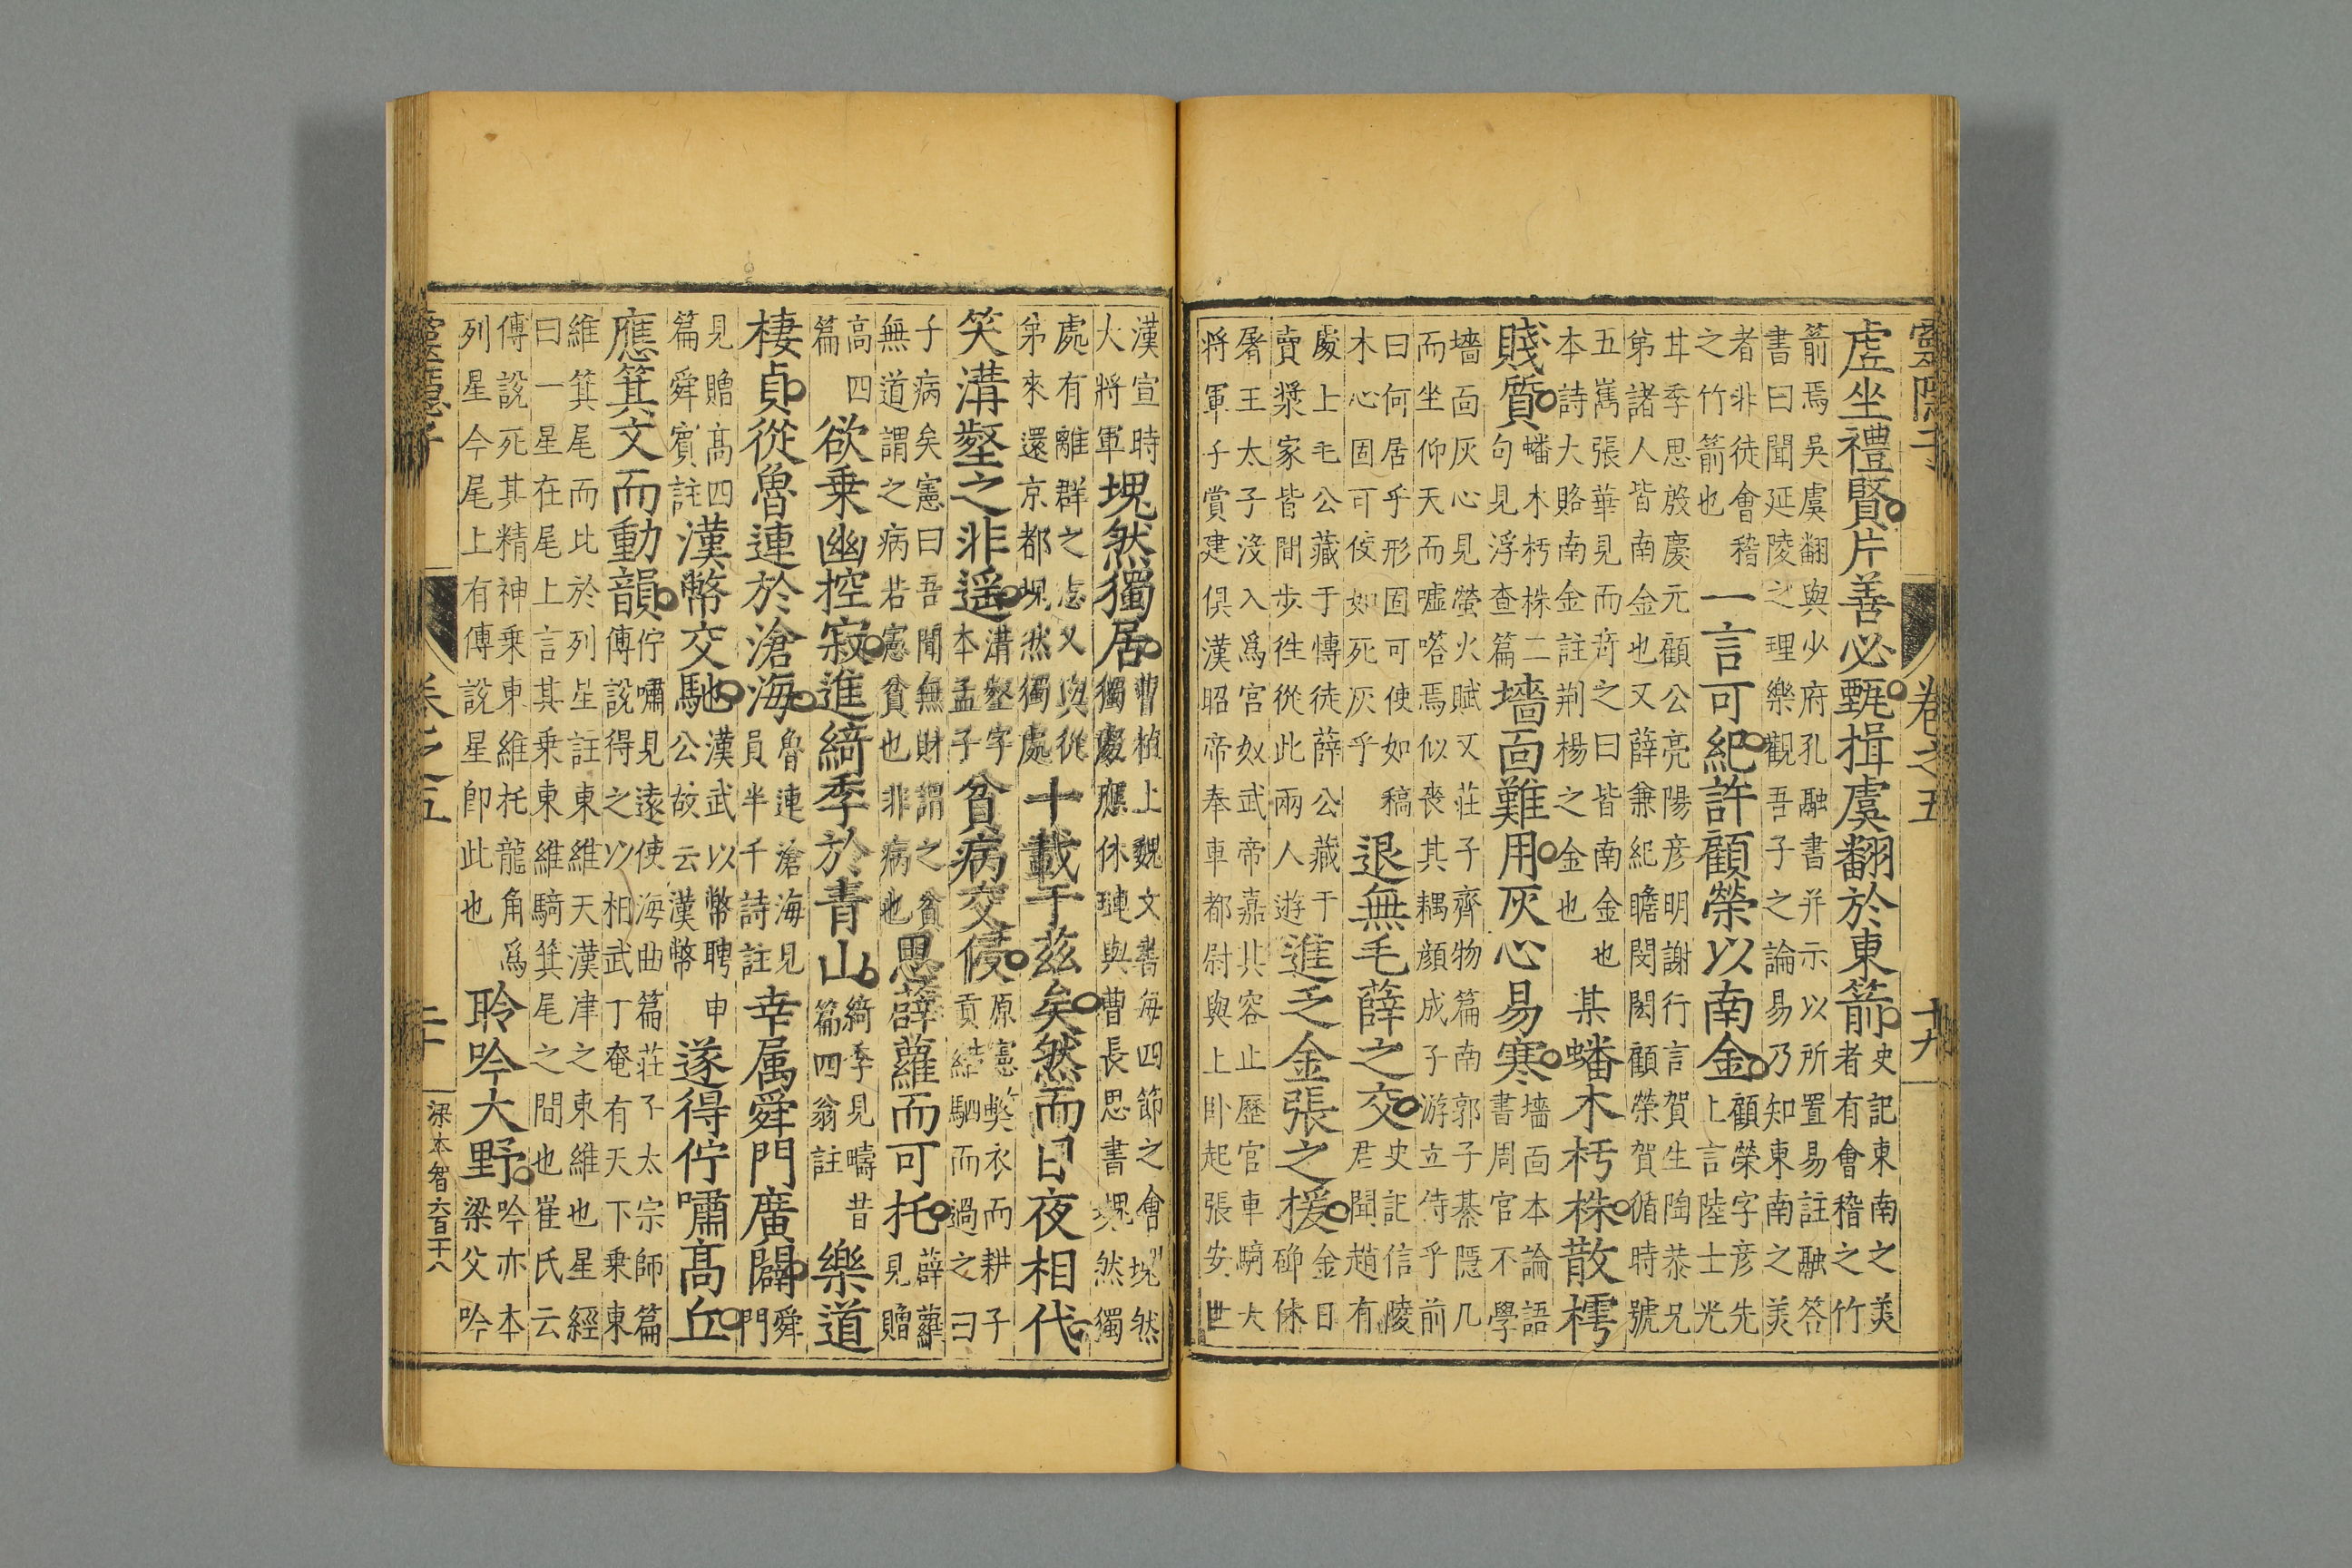 靈隱子 卷之五 十九
虗坐禮賢片善必甄揖虞翻於東箭史記東南之美者有會稽之竹
箭焉吳虞翻與少府孔融書并示以所置易註融答書曰聞延陵之理樂觀吾子之論易乃知東南之美
者非徒會稽之竹箭也一言可紀許顧榮以南金顧榮字彦先上言陸士光
季思殷慶元顧公亮陽彦明謝行言賀生陶恭兄第諸人皆南金也又薛兼紀瞻閔閎顧榮賀循時號
五嶲張華見而竒之曰皆南金也本詩大賂南金註荆楊之金也某蟠木朽株散樗
賤質蟠木朽株二句見浮查篇墻面難用灰心易寒墻面本論語書周官不學
墻面灰心見螢火賦又莊子齊物篇南郭子綦隱几而坐仰天而噓嗒焉似喪其耦顔成子游立侍乎前
曰何居乎形固可使如稿木心固可使如死灰乎退無毛薛之交史記信陵君聞趙有
處上毛公藏于慱徒薛公藏于賣漿家皆間步徃從此兩人遊進乏金張之援金日磾休
屠王太子沒入爲官奴武帝嘉其容止歷官車騎大將軍子賞建倶漢昭帝奉車都尉與上卧起張安世
漢宣時大將軍塊然獨居曹植上魏文書海四節之會塊然獨處應休璉與曹長思書塊然獨
處有離群之志又與從弟來還京都塊然獨處十載于兹矣然而日夜相代
笑溝壑之非遥溝壑字本孟子貧病交侵原憲獘衣而耕子貢結駟而過之曰
子病矣憲曰吾聞無財謂之貧無道謂之病若憲貧也非病也思薜蘿而可托薜蘿見贈
高四篇欲乗幽控寂進綺季於青山綺季見疇昔篇四翁註樂道
棲貞從魯連於滄海魯連滄海見員半千詩註幸属舜門廣闢舜門
見贈高四篇舜賓註漢幣交馳漢武以幣聘申公故云漢幣遂得佇嘯高丘
應箕文而動韻佇嘯見遠使海曲篇莊子太宗師篇傅說得之以相武丁奄有天下乗東
維箕尾而比於列星註東維天漢津之東維也星經曰一星在尾上言其乗東維騎箕尾之間也崔氏云
傅說死其精神乗東維托龍角爲列星今尾上有傅說星卽此也聆吟大野吟亦本梁父吟
靈隱子 卷之五 二十 本智六百二十八